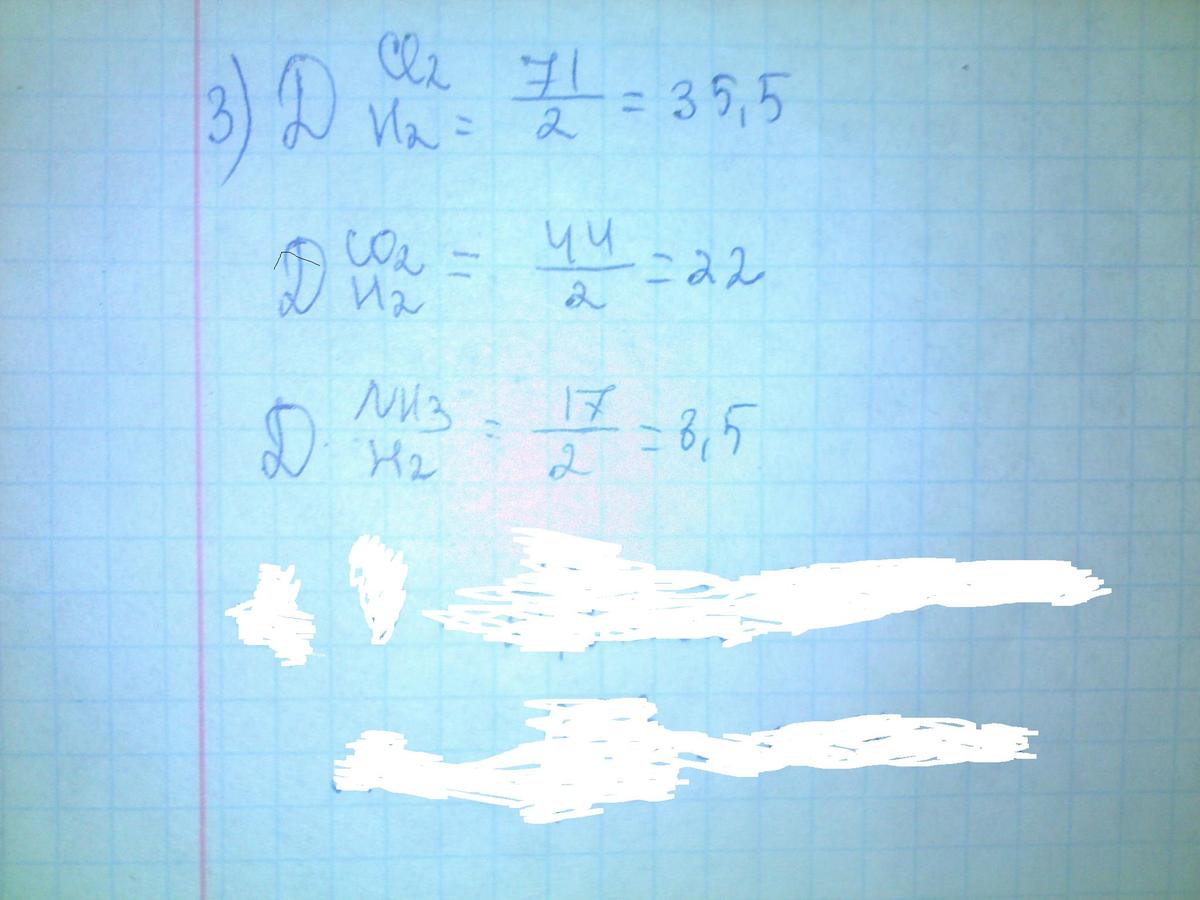 3) D Cl2
H2 = 71/2 = 35,5
D CO2
H2 = 44/2 = 22
D NH3
H2 = 17/2 = 8,5